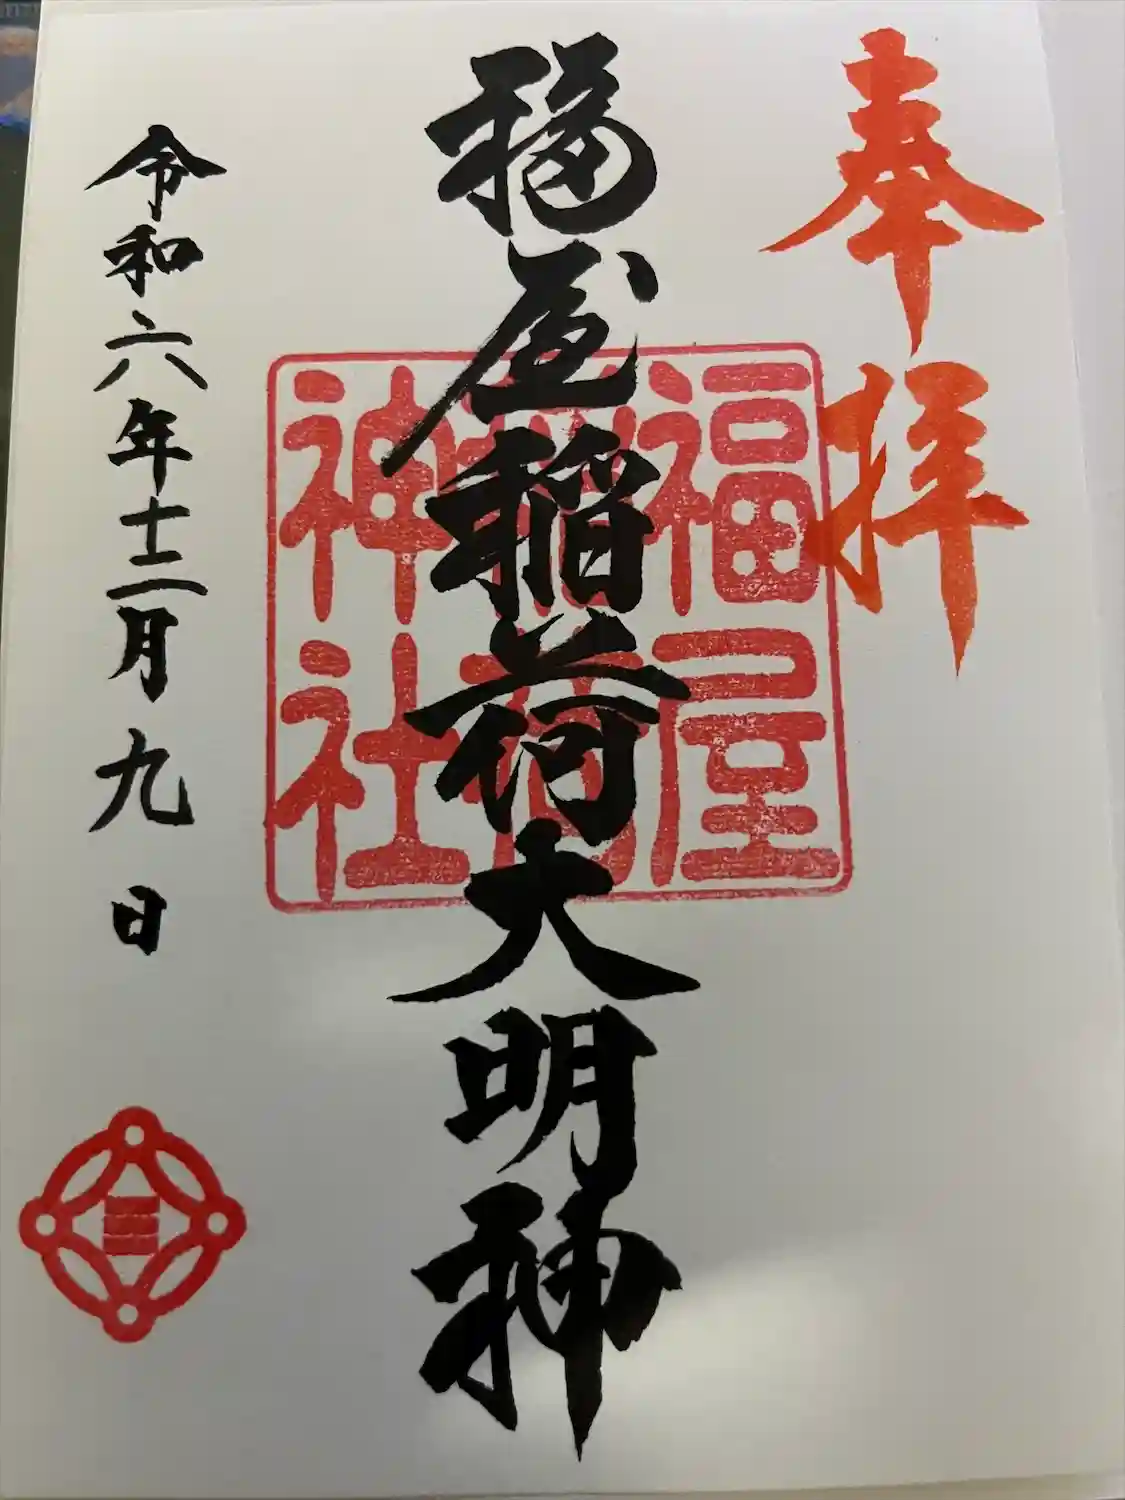 奉拝
福屋稲荷大明神
福屋稲荷神社
令和六年十二月九日